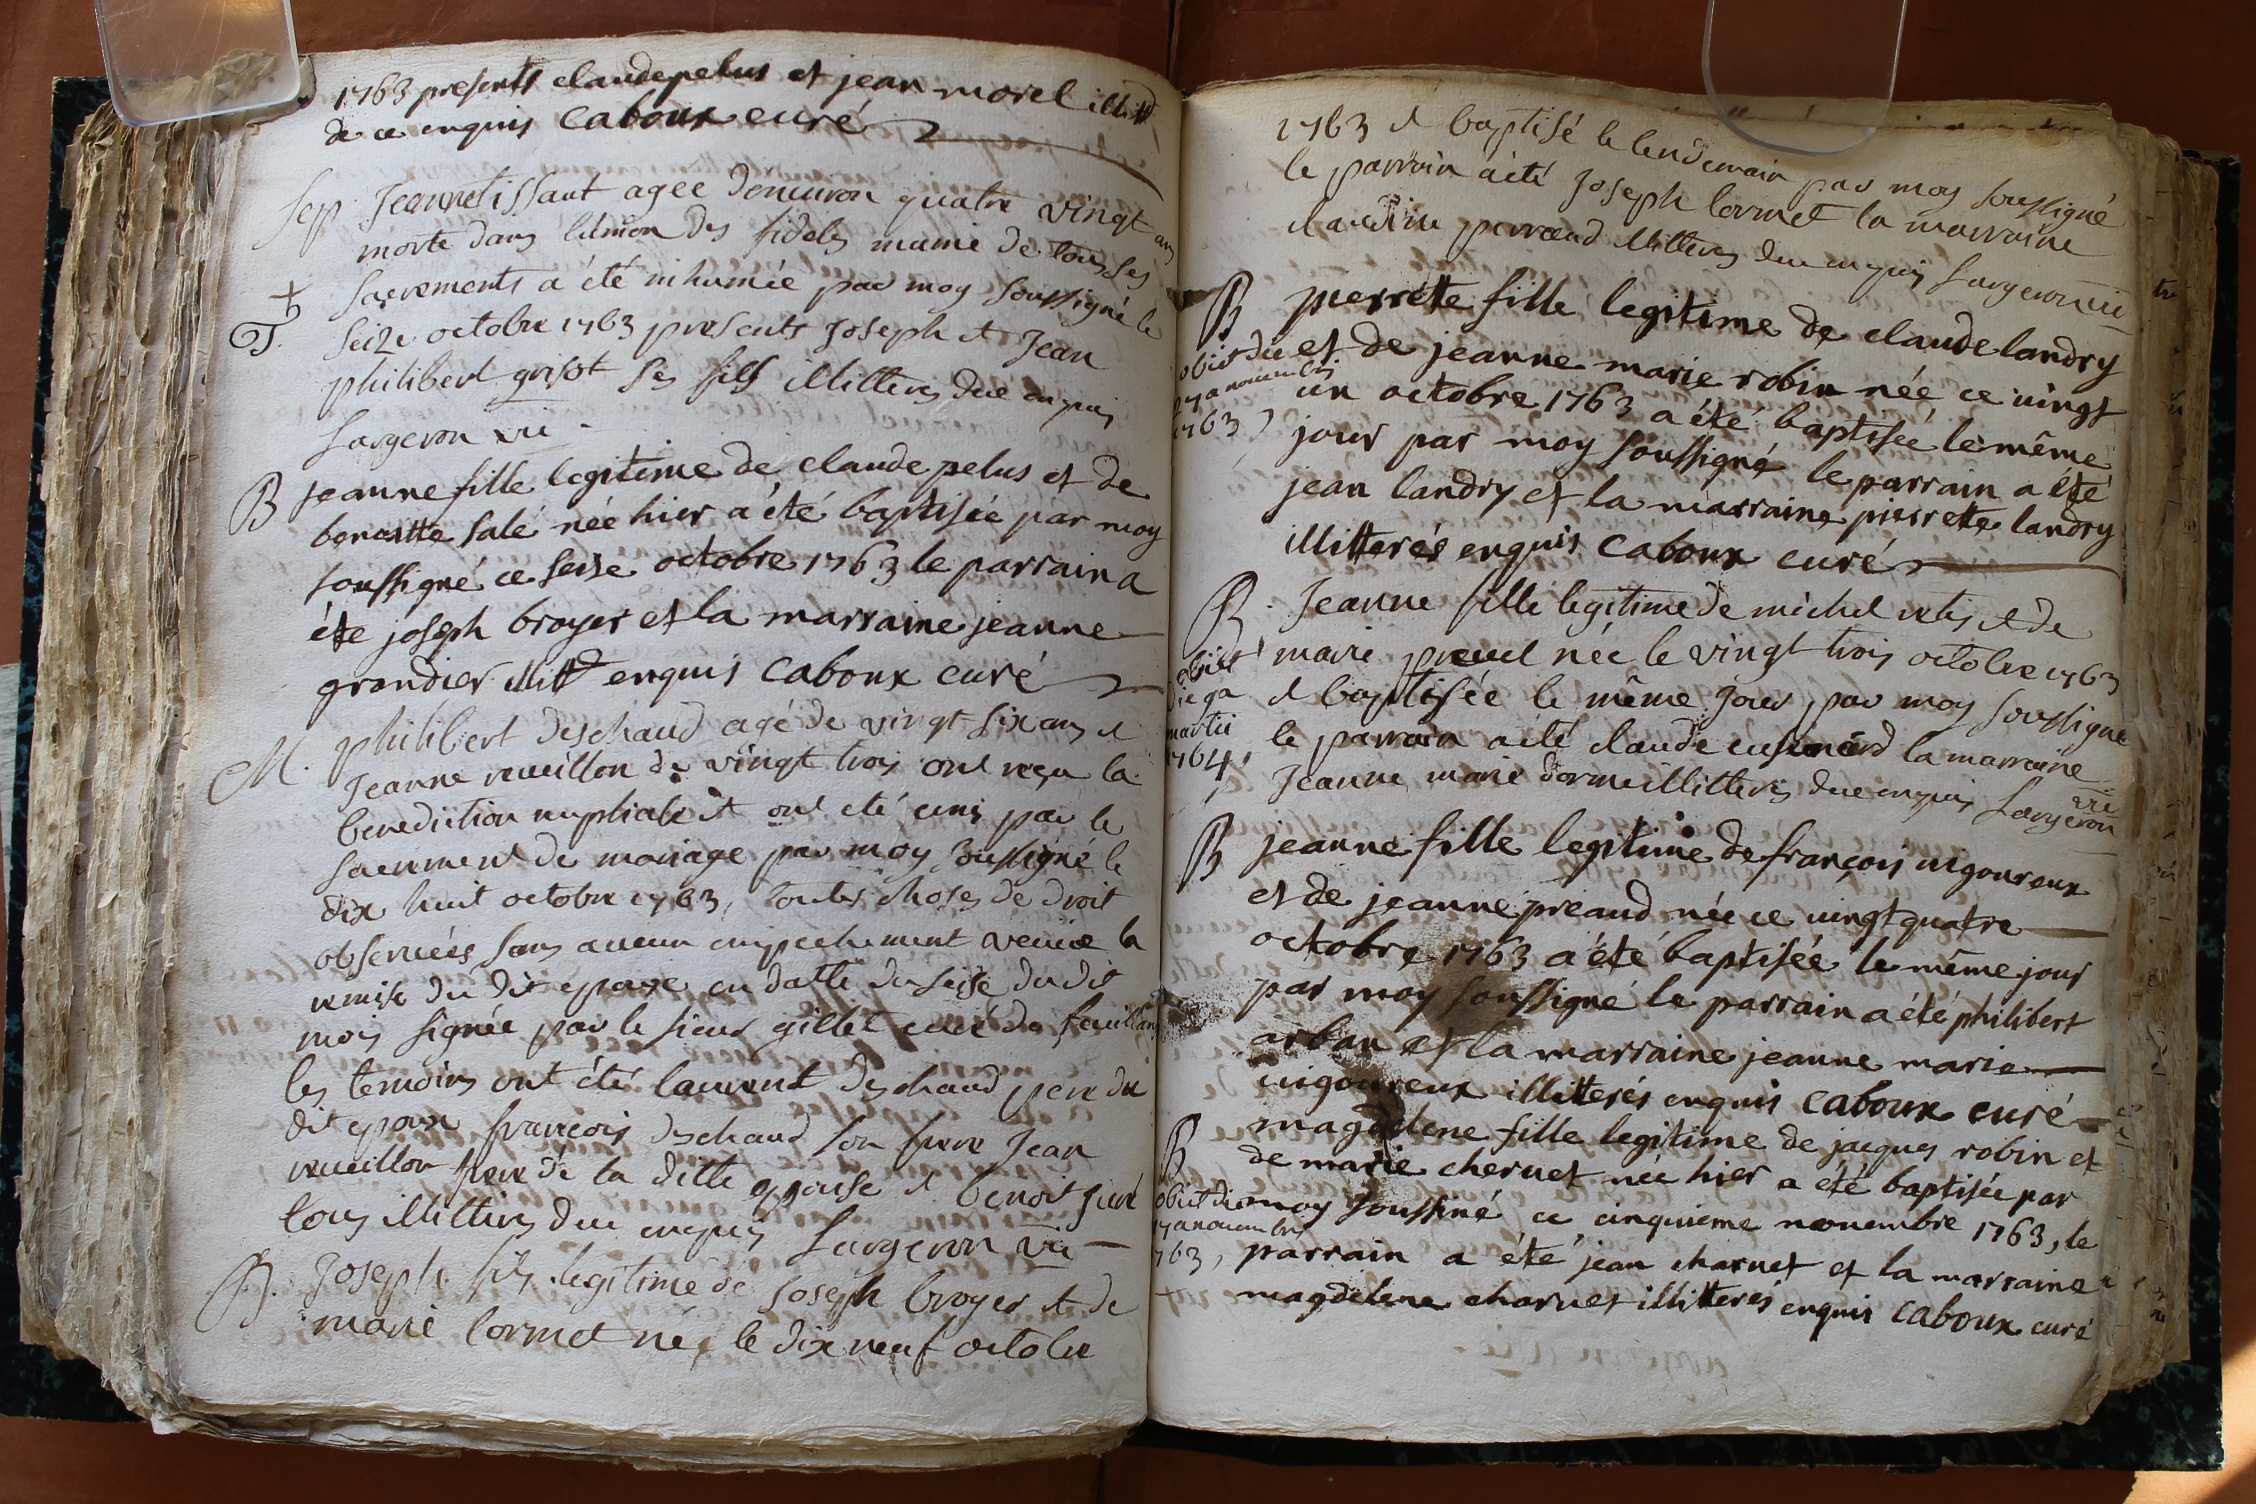 1763 presents claude pelus et jean morel illitt
de ce enquis caboux curé
Sep. Jeanne tissaut agee denuiron quatre vingt ans
morte dans lunion des fideles munie de tous ses
sacrements a été inhumée par moy soussigné le
+
T. seize octobre 1763 presents Joseph et Jean
philibert grisot ses fils illitteres due enquis
Sargeron vic
B jeanne fille legitime de claude pelus et de
benoitte salé née hier a été baptisée par moy
soussigné ce seise octobre 1763 le parrain a
éte joseph broyer et la marraine jeanne
grandier illitt enquis caboux curé
M. philibert deschaud agé de vingt six ans et
Jeanne reueillon de vingt trois ont reçu la
benediction nuptiale et ont eté unis par le
sacrement de mariage par moy soussigné le
dix huit octobre 1763, toutes choses de droit
observées sans aucun empechement veüe la
remise du dit epoux en datte du seise du dit
mois signée par le sieur gillet curé de feuillans
les temoins ont été laurent deschaud pere du
dit epoux françois deschaud son frere Jean
reueillon pere de la ditte epouse et benoit
tous illitteres due enquis Sargeron vic
B. Joseph fils legitime de Joseph broyer et de
marie cormet né le dix neuf octobre
1763 et baptisé le lendemain par moy soussigné
le parrain a été Joseph cormet la marraine
claudine perraud illitteres due enquis Sargeron vic
B pierrette fille legitime de claude landry
obiit die et de jeanne marie robin née ce uingt
27a nouembris un octobre 1763 a été baptisée le même
1763 jour par moy soussigné le parrain a été
jean landry et la marraine pierrette landry
illitterés enquis caboux curé
B. Jeanne fille legitime de michel et de
obiit marie preuel née le vingt trois octobre 1763
die 9a et baptisée le même jour par moy soussigné
martii le parrain a été claude la marraine
1764, Jeanne marie illitteres due enquis Sargeron vic
B jeanne fille legitime de françois uigoureux
et de jeanne preaud née ce uingt quatre
octobre 1763 a été baptisée le même jour
par moy soussigné le parrain a été philibert
arban et la marraine jeanne marie
uigoureux illitterés enquis caboux curé
B magdelene fille legitime de jacques robin et
de marie cheruet née hier a été baptisée par
obiit die moy soussiné ce cinquieme nouembre 1763, le
17a nouembris
1763, parrain a été jean charuet et la marraine
magdelene charuet illitterés enquis caboux curé